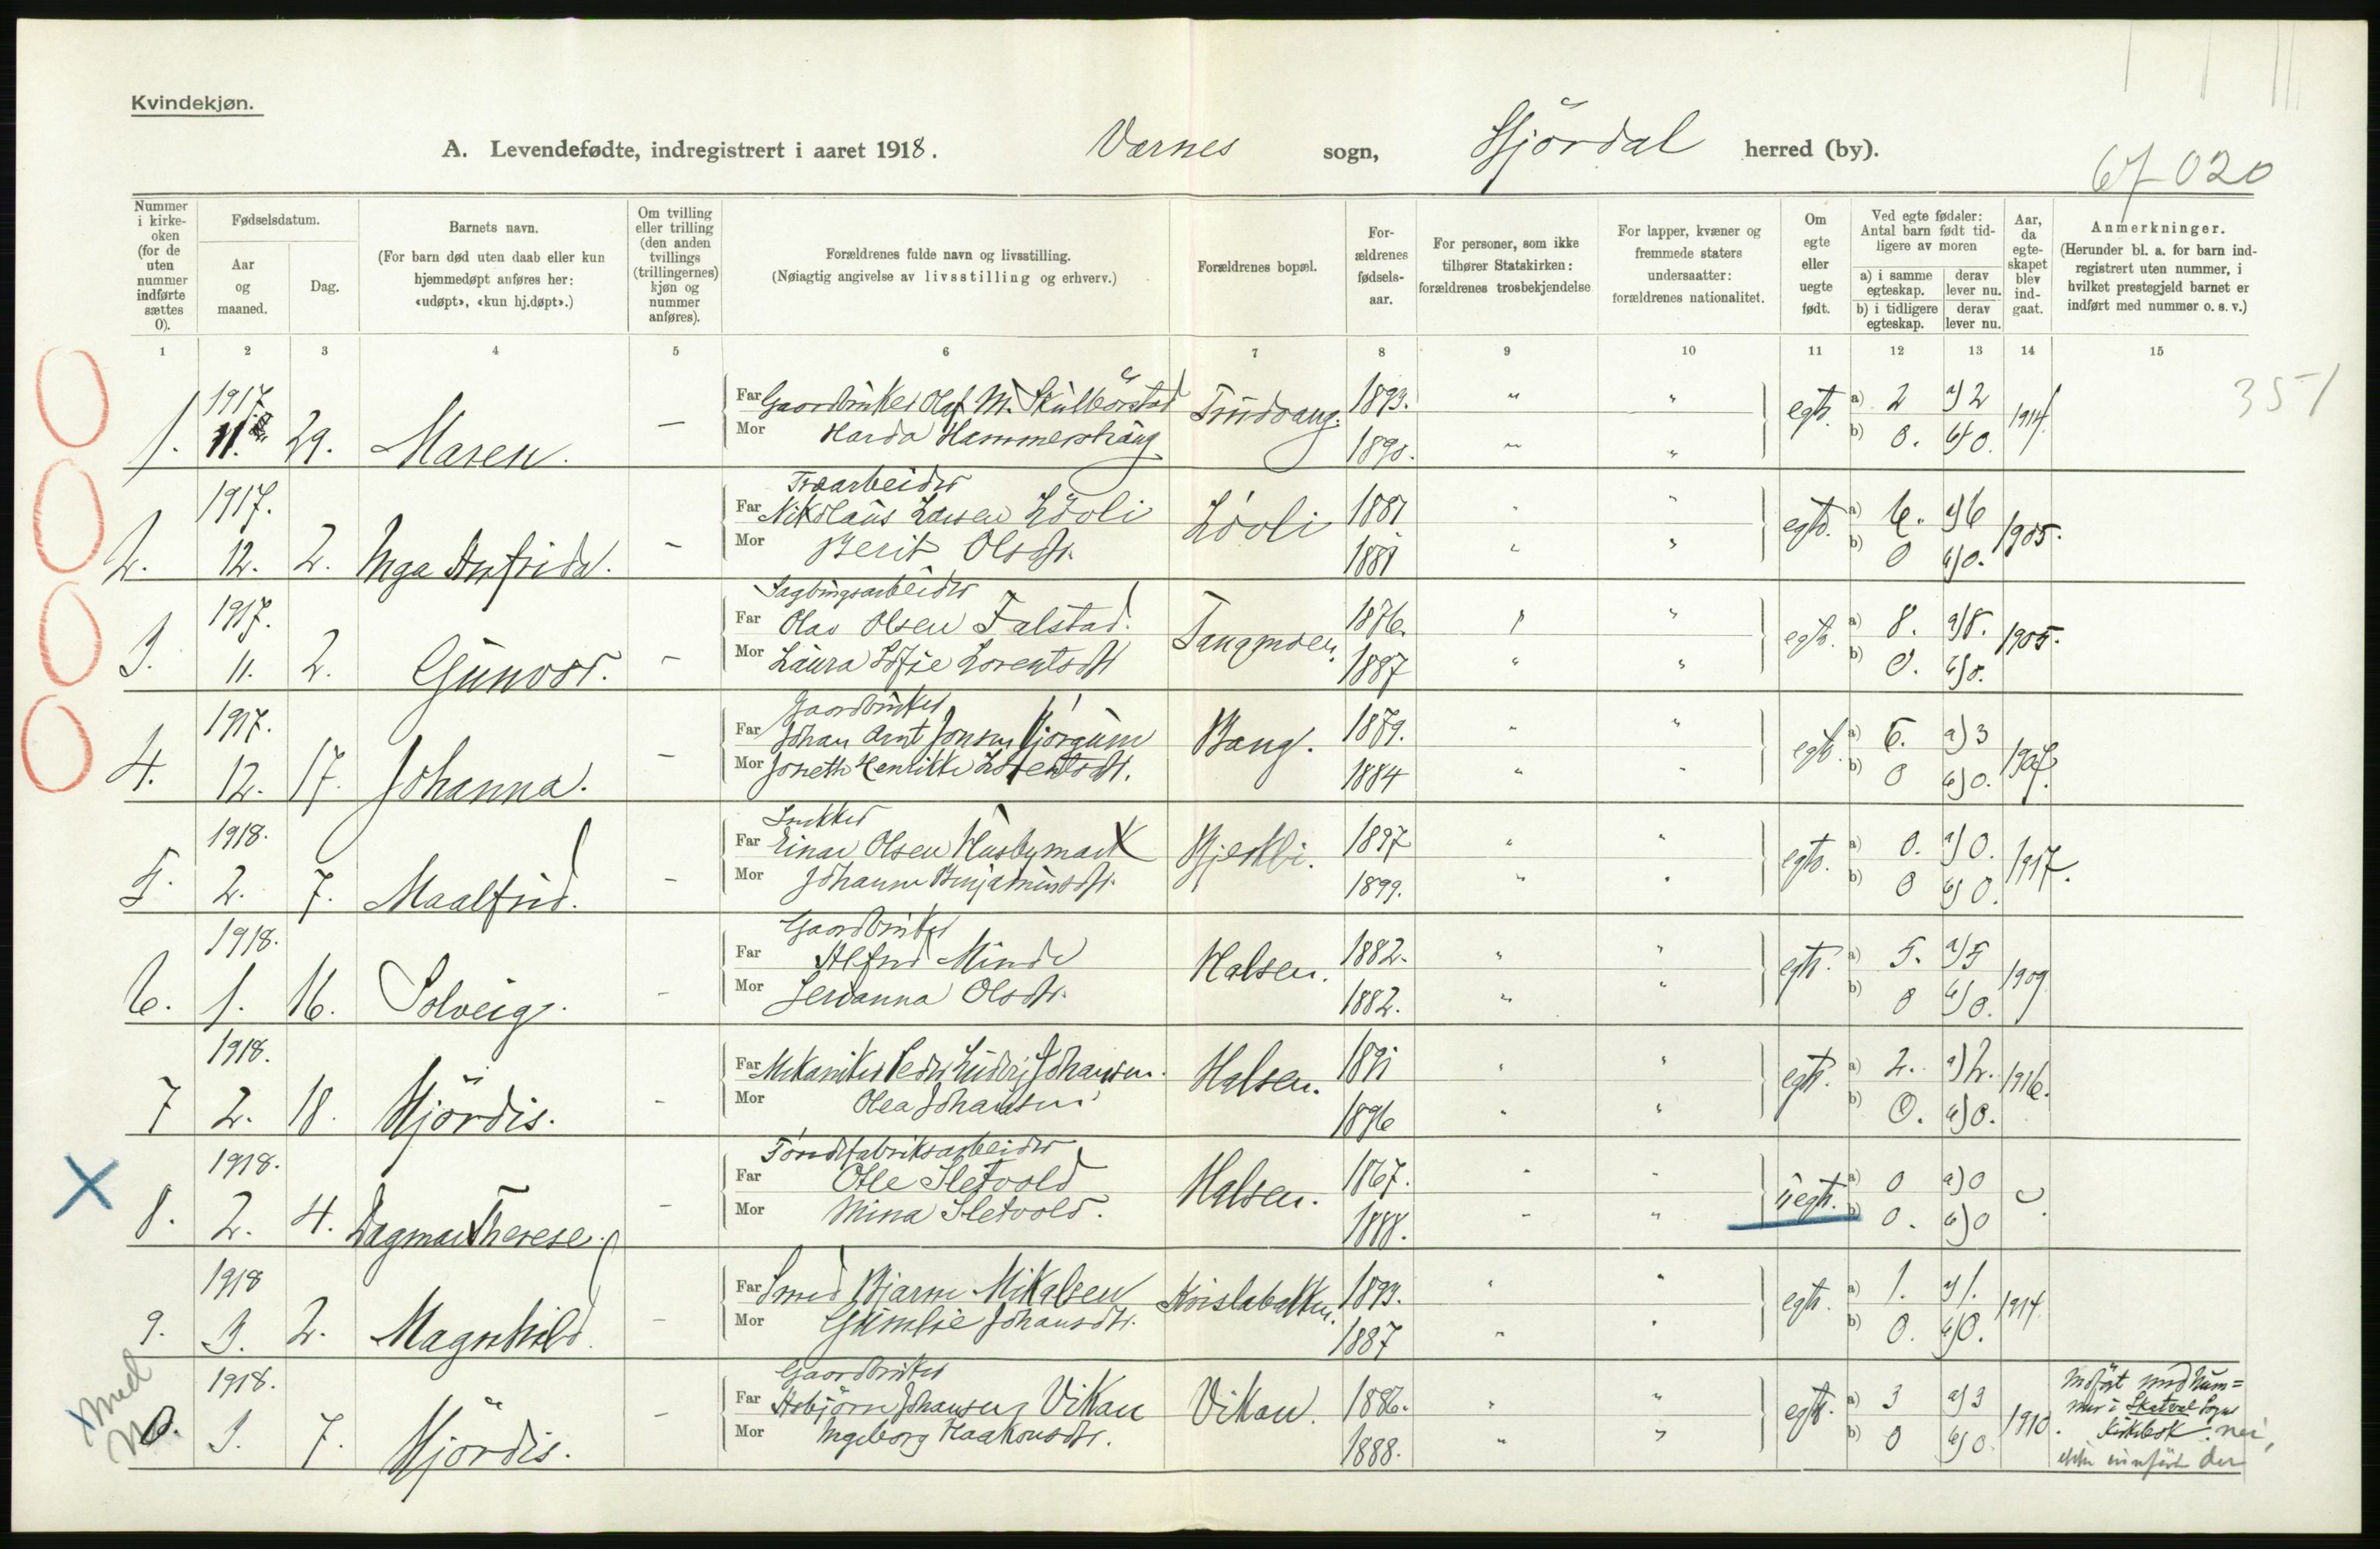 Kvindekjøn.
A. Levendefødte, indregistrert i aaret 1918. Værnes sogn, Stjördal herred (by).
67 020
Nummer i kirke-oken (for de uten nummer indførte sættes 0).
Fødselsdatum.
Aar og maaned.
Dag.
Barnets navn.
(For barn død uten daab eller kun hjemmedøpt anføres her: «udøpt», «kun hj.døpt».)
Om tvilling eller trilling (den anden tvillings (trillingernes) kjøn og nummer anføres).
Forældrenes fulde navn og livsstilling.
(Nøiagtig angivelse av livsstilling og erhverv.)
Forældrenes bopæl.
For-ældrenes fødsels-aar.
For personer, som ikke tilhører Statskirken: forældrenes trosbekjendelse
For lapper, kvæner og fremmede staters undersaatter: forældrenes nationalitet.
Om egte eller uegte født.
Ved egte fødsler: Antal barn født tid-ligere av moren
a) i samme egteskap.
derav lever nu.
b) i tidligere egteskap.
derav lever nu.
Aar, da egte-skapet blev ind-gaat.
Anmerkninger.
(Herunder bl. a. for barn ind-registrert uten nummer, i hvilket prestegjeld barnet er indført med nummer o. s. v.)
1 2 3 4 5 6 7 8 9 10 11 12 13 14 15
351
1917.
Far Gaardbruker Olaf M. Skulbörstad Trudvang. 1893. " " egte. a) 2 a) 2 1914.
1. 11. 29. Maren. — Mor Harda Hammerstrang 1890. " " b) 0. b) 0.
Træarbeider
1917. Far Nikolaus Larsen Lööli Lööli 1881 " " egte. a) 6. a) 6 1905.
2. 12. 2. Inga Anfrida. — Mor Berit Olsdtr. 1881 " " b) 0 b) 0.
Sagbrugsarbeider
1917. Far Olav Olsen Falstad. Tangmoen. 1876. " " egte. a) 8. a) 8. 1905.
3. 11. 2. Gunvor. — Mor Laura Sofie Lorentsdtr 1887 " " b) 0. b) 0.
Gaardbruker
1917. Far Johan Arnt Jonsen Bjørgum Bang. 1879. " " egte. a) 6. a) 3 1907.
4. 12. 17. Johanna. — Mor Joneth Henrikke Lorentsdtr. 1884 " " b) 0 b) 0.
Snekker
1918. Far Einar Olsen Husbymark 1897 " " egte. a) 0. a) 0. 1917.
5. 2. 7. Maalfrid. — Mor Johanna Benjaminsdtr. 1899. " " b) 0 b) 0.
Gaardbruker
1918. Far Alfred Minde Halsen. 1882. " " egte. a) 5. a) 5 1909
6. 1. 16. Solveig. — Mor Jerianna Olsdtr. 1882. " " b) 0 b) 0.
1918. Far Mekaniker Peder Ludvig Johansen. Halsen. 1891 " " egte. a) 2. a) 2. 1916.
7 2. 18. Hjördis. — Mor Olea Johansen 1896 " " b) 0. b) 0.
Töndefabriksarbeider
1918. Far Otle Sletvold Halsen. 1867. " " uegte. a) 0 a) 0
8. 2. 4. Dagmar Therese. — Mor Mina Sletvold. 1888. " " b) 0. b) 0
1918 Far Smed Bjarne Mikalsen Kvislabakken. 1893. " " egte. a) 1. a) 1. 1914
9. 3. 2. Magnhild. — Mor Gunelie Johansdtr. 1887 " " b) 0. b) 0.
Gaardbruker
1918. Far Asbjörn Johansen Vikan Vikan. 1886. " " egte. a) 3 a) 3 1910.
0. 3. 7. Hjördis. — Mor Ingeborg Haakonsdtr. 1888. " " b) 0 b) 0
x med
No
Indfört med Num=
mer i Skatval Sogns
Kirkebok. nei,
ikke innført der